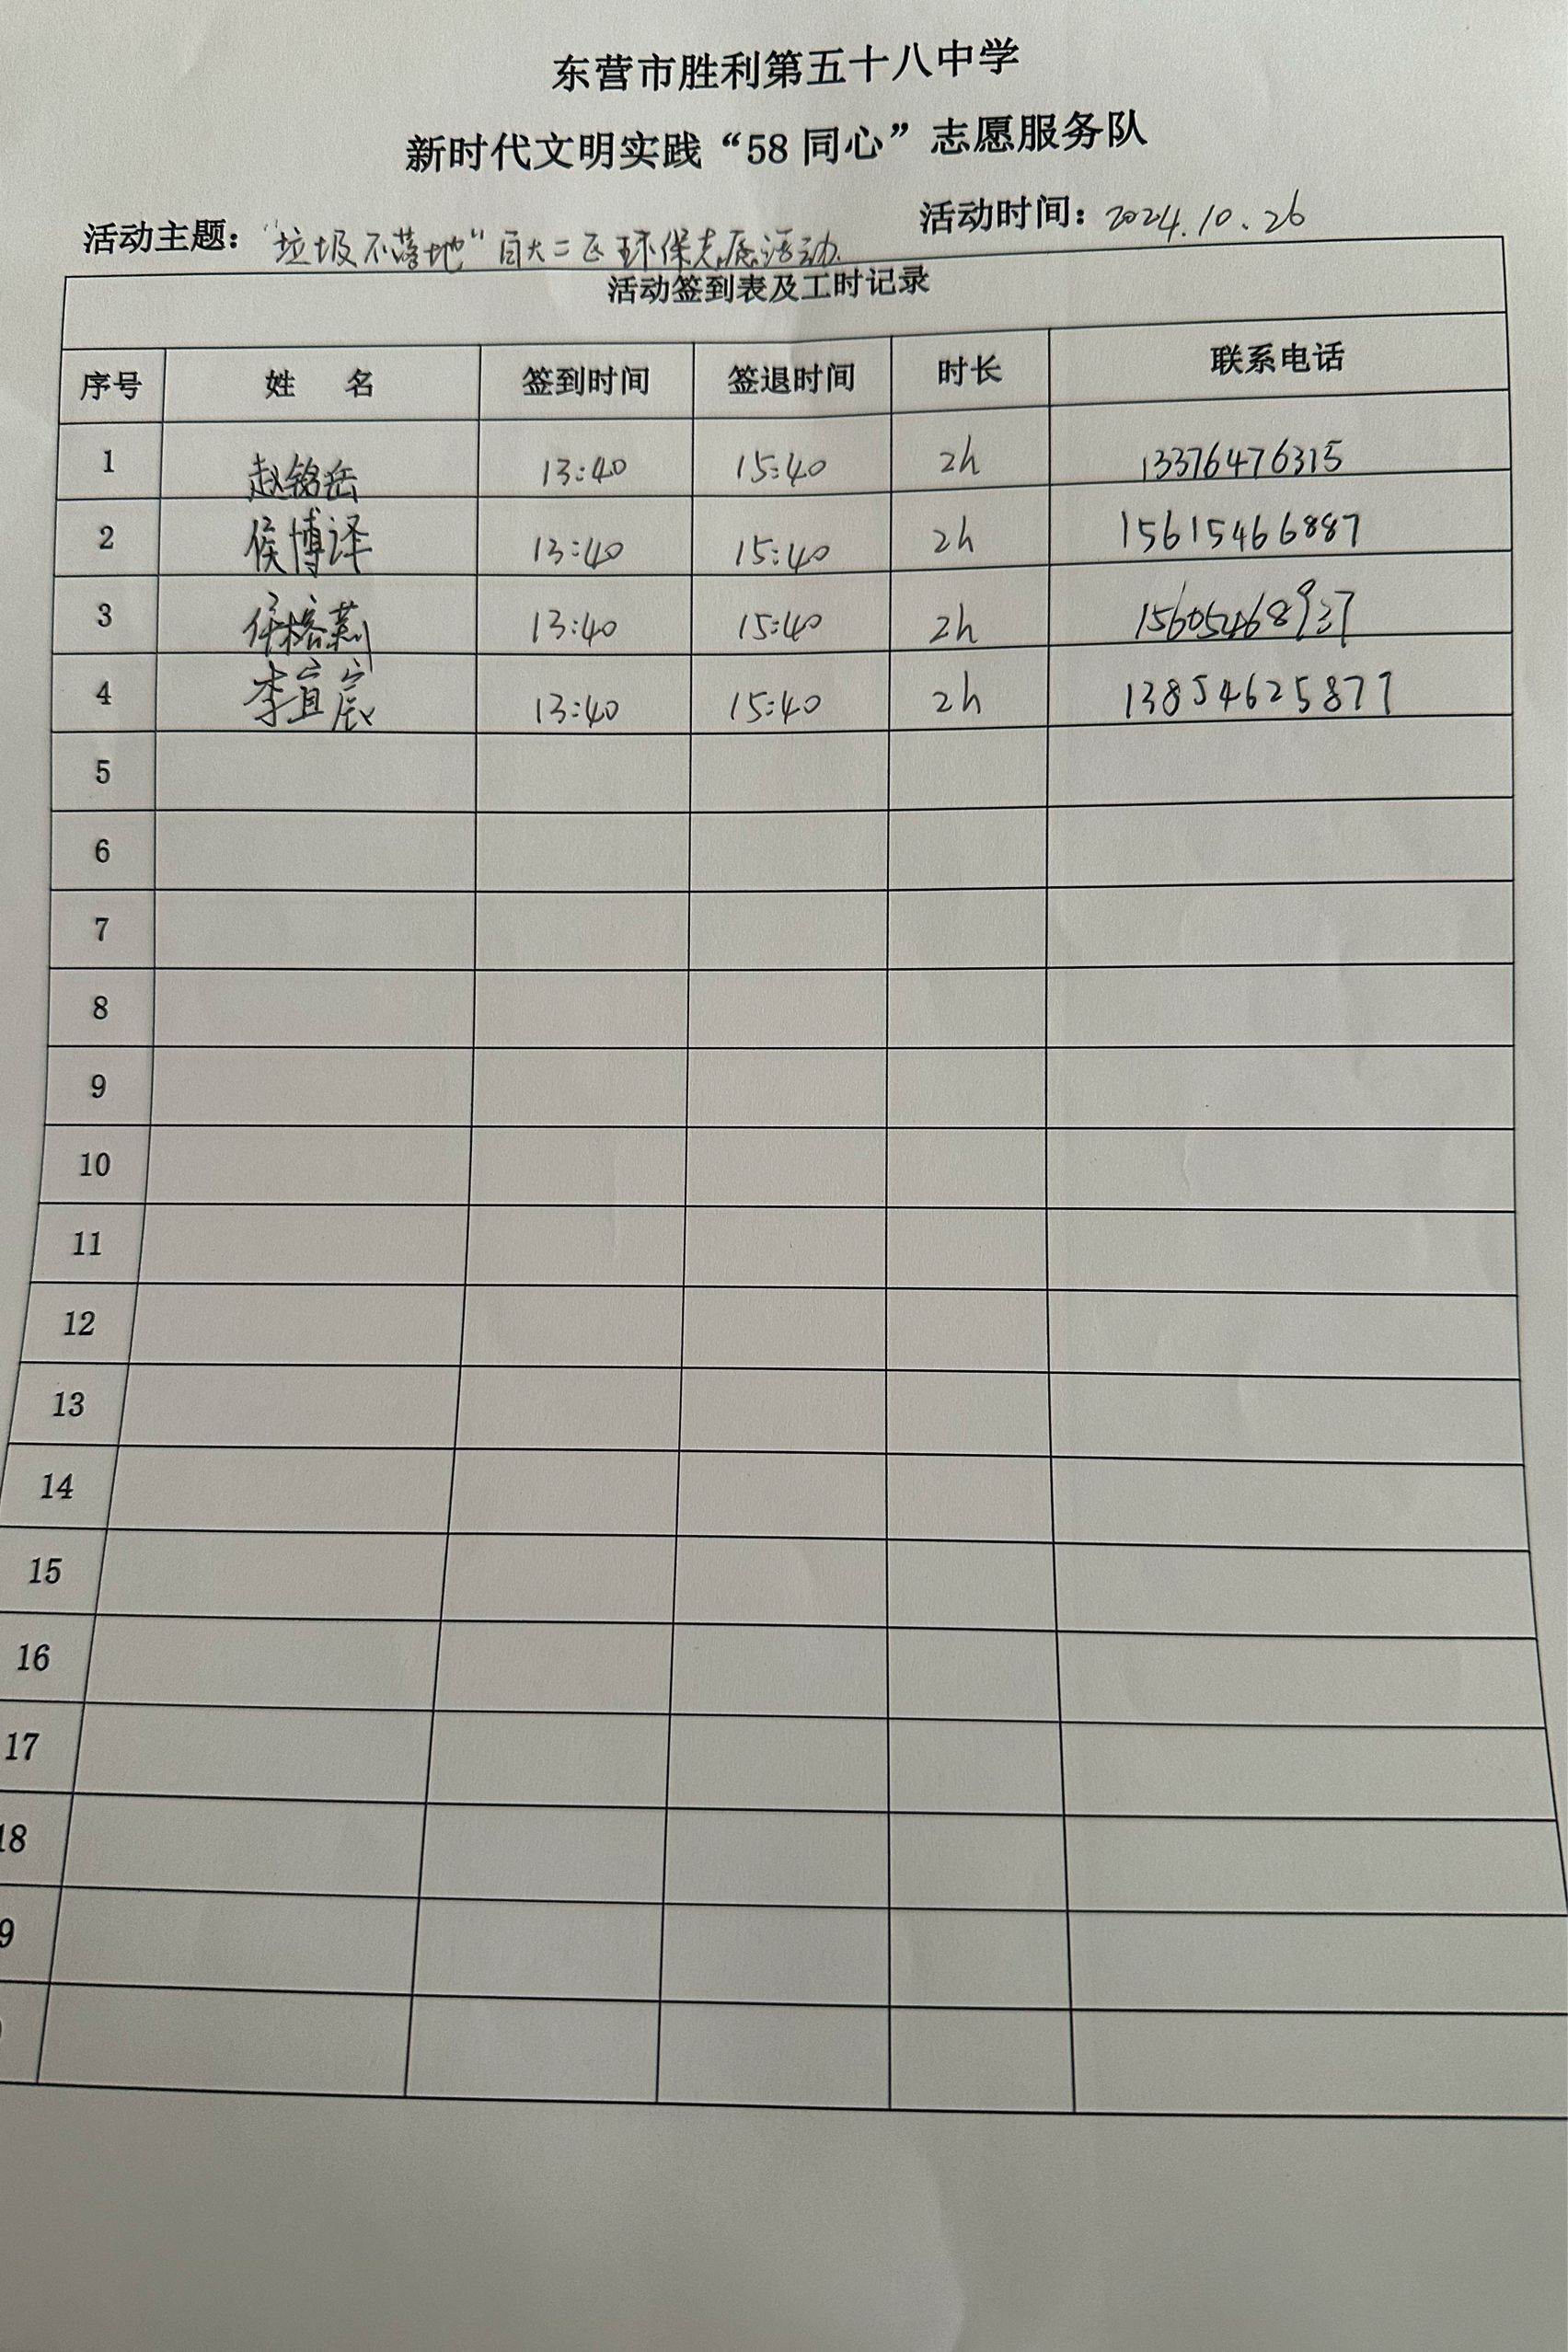 东营市胜利第五十八中学
新时代文明实践“58 同心”志愿服务队
活动主题：“垃圾不落地”百大二区环保志愿活动. 活动时间：2024.10.26
活动签到表及工时记录
序号 姓 名 签到时间 签退时间 时长 联系电话
1 赵铭岳 13:40 15:40 2h 13376476315
2 侯博译 13:40 15:40 2h 15615466887
3 13:40 15:40 2h 15605468937
4 李宜宸 13:40 15:40 2h 13854625877
5
6
7
8
9
10
11
12
13
14
15
16
17
18
9